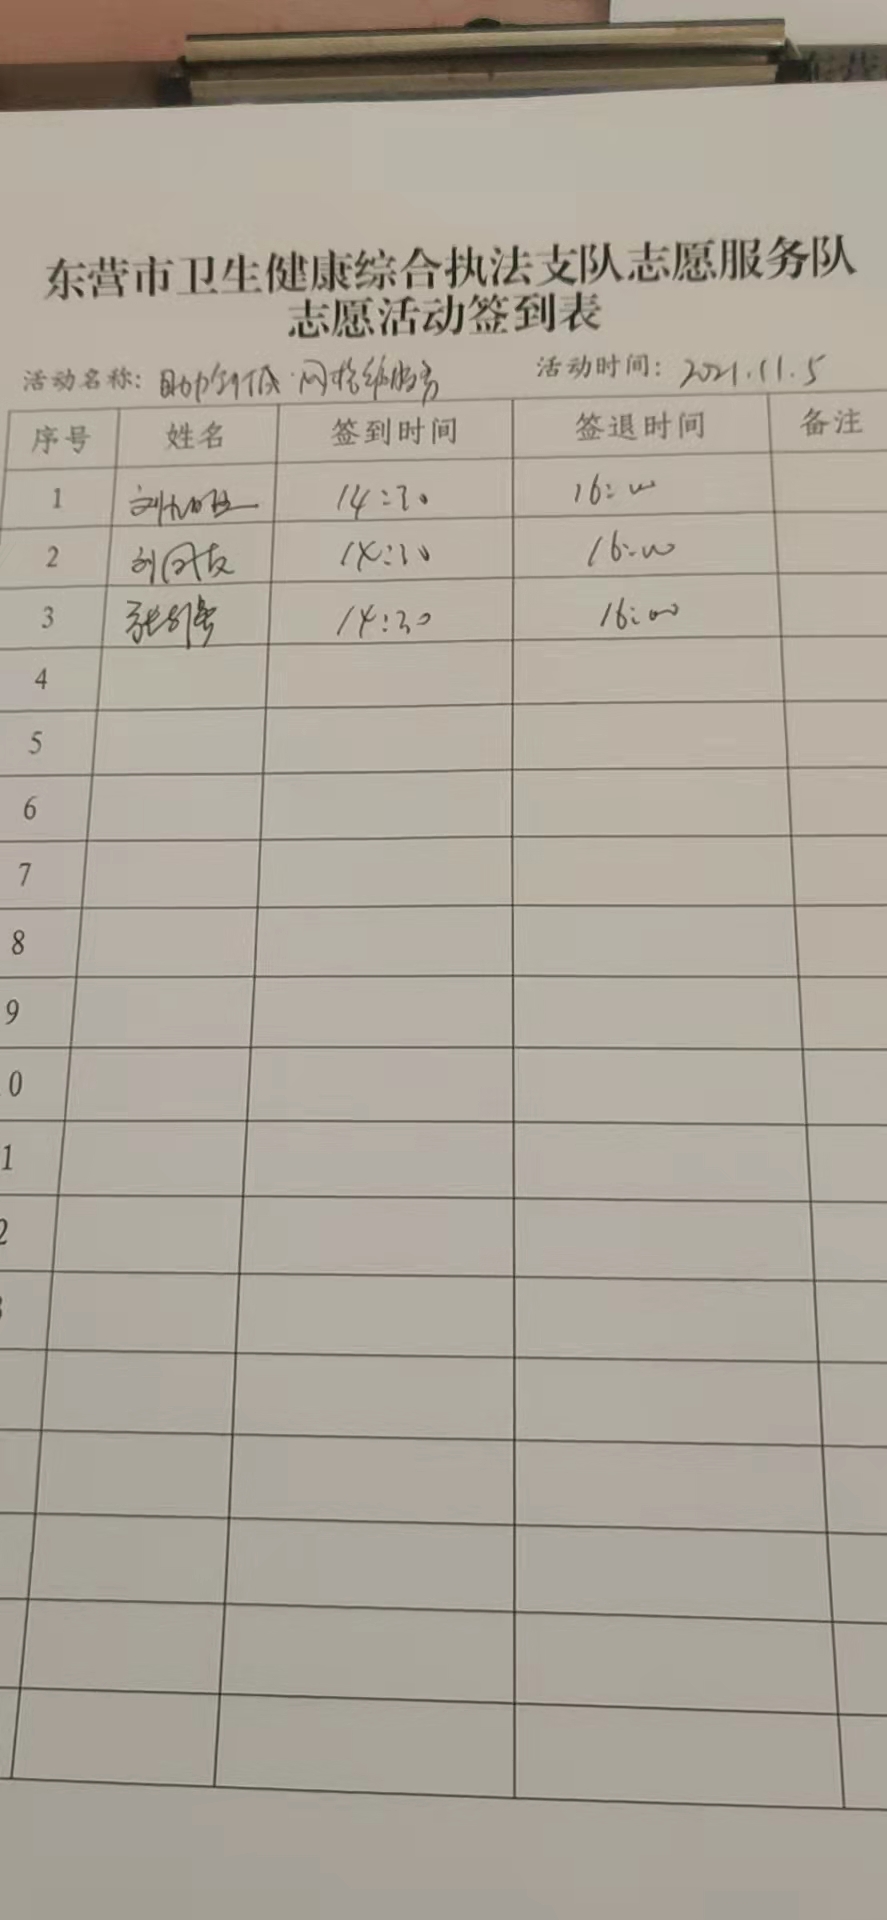 东营市卫生健康综合执法支队志愿服务队
志愿活动签到表
活动名称: 网格 服务 活动时间: 2021.11.5
序号 姓名 签到时间 签退时间 备注
1 刘 14:30 16:00
2 刘 14:30 16:00
3 张 14:30 16:00
4
5
6
7
8
9
0
1
2